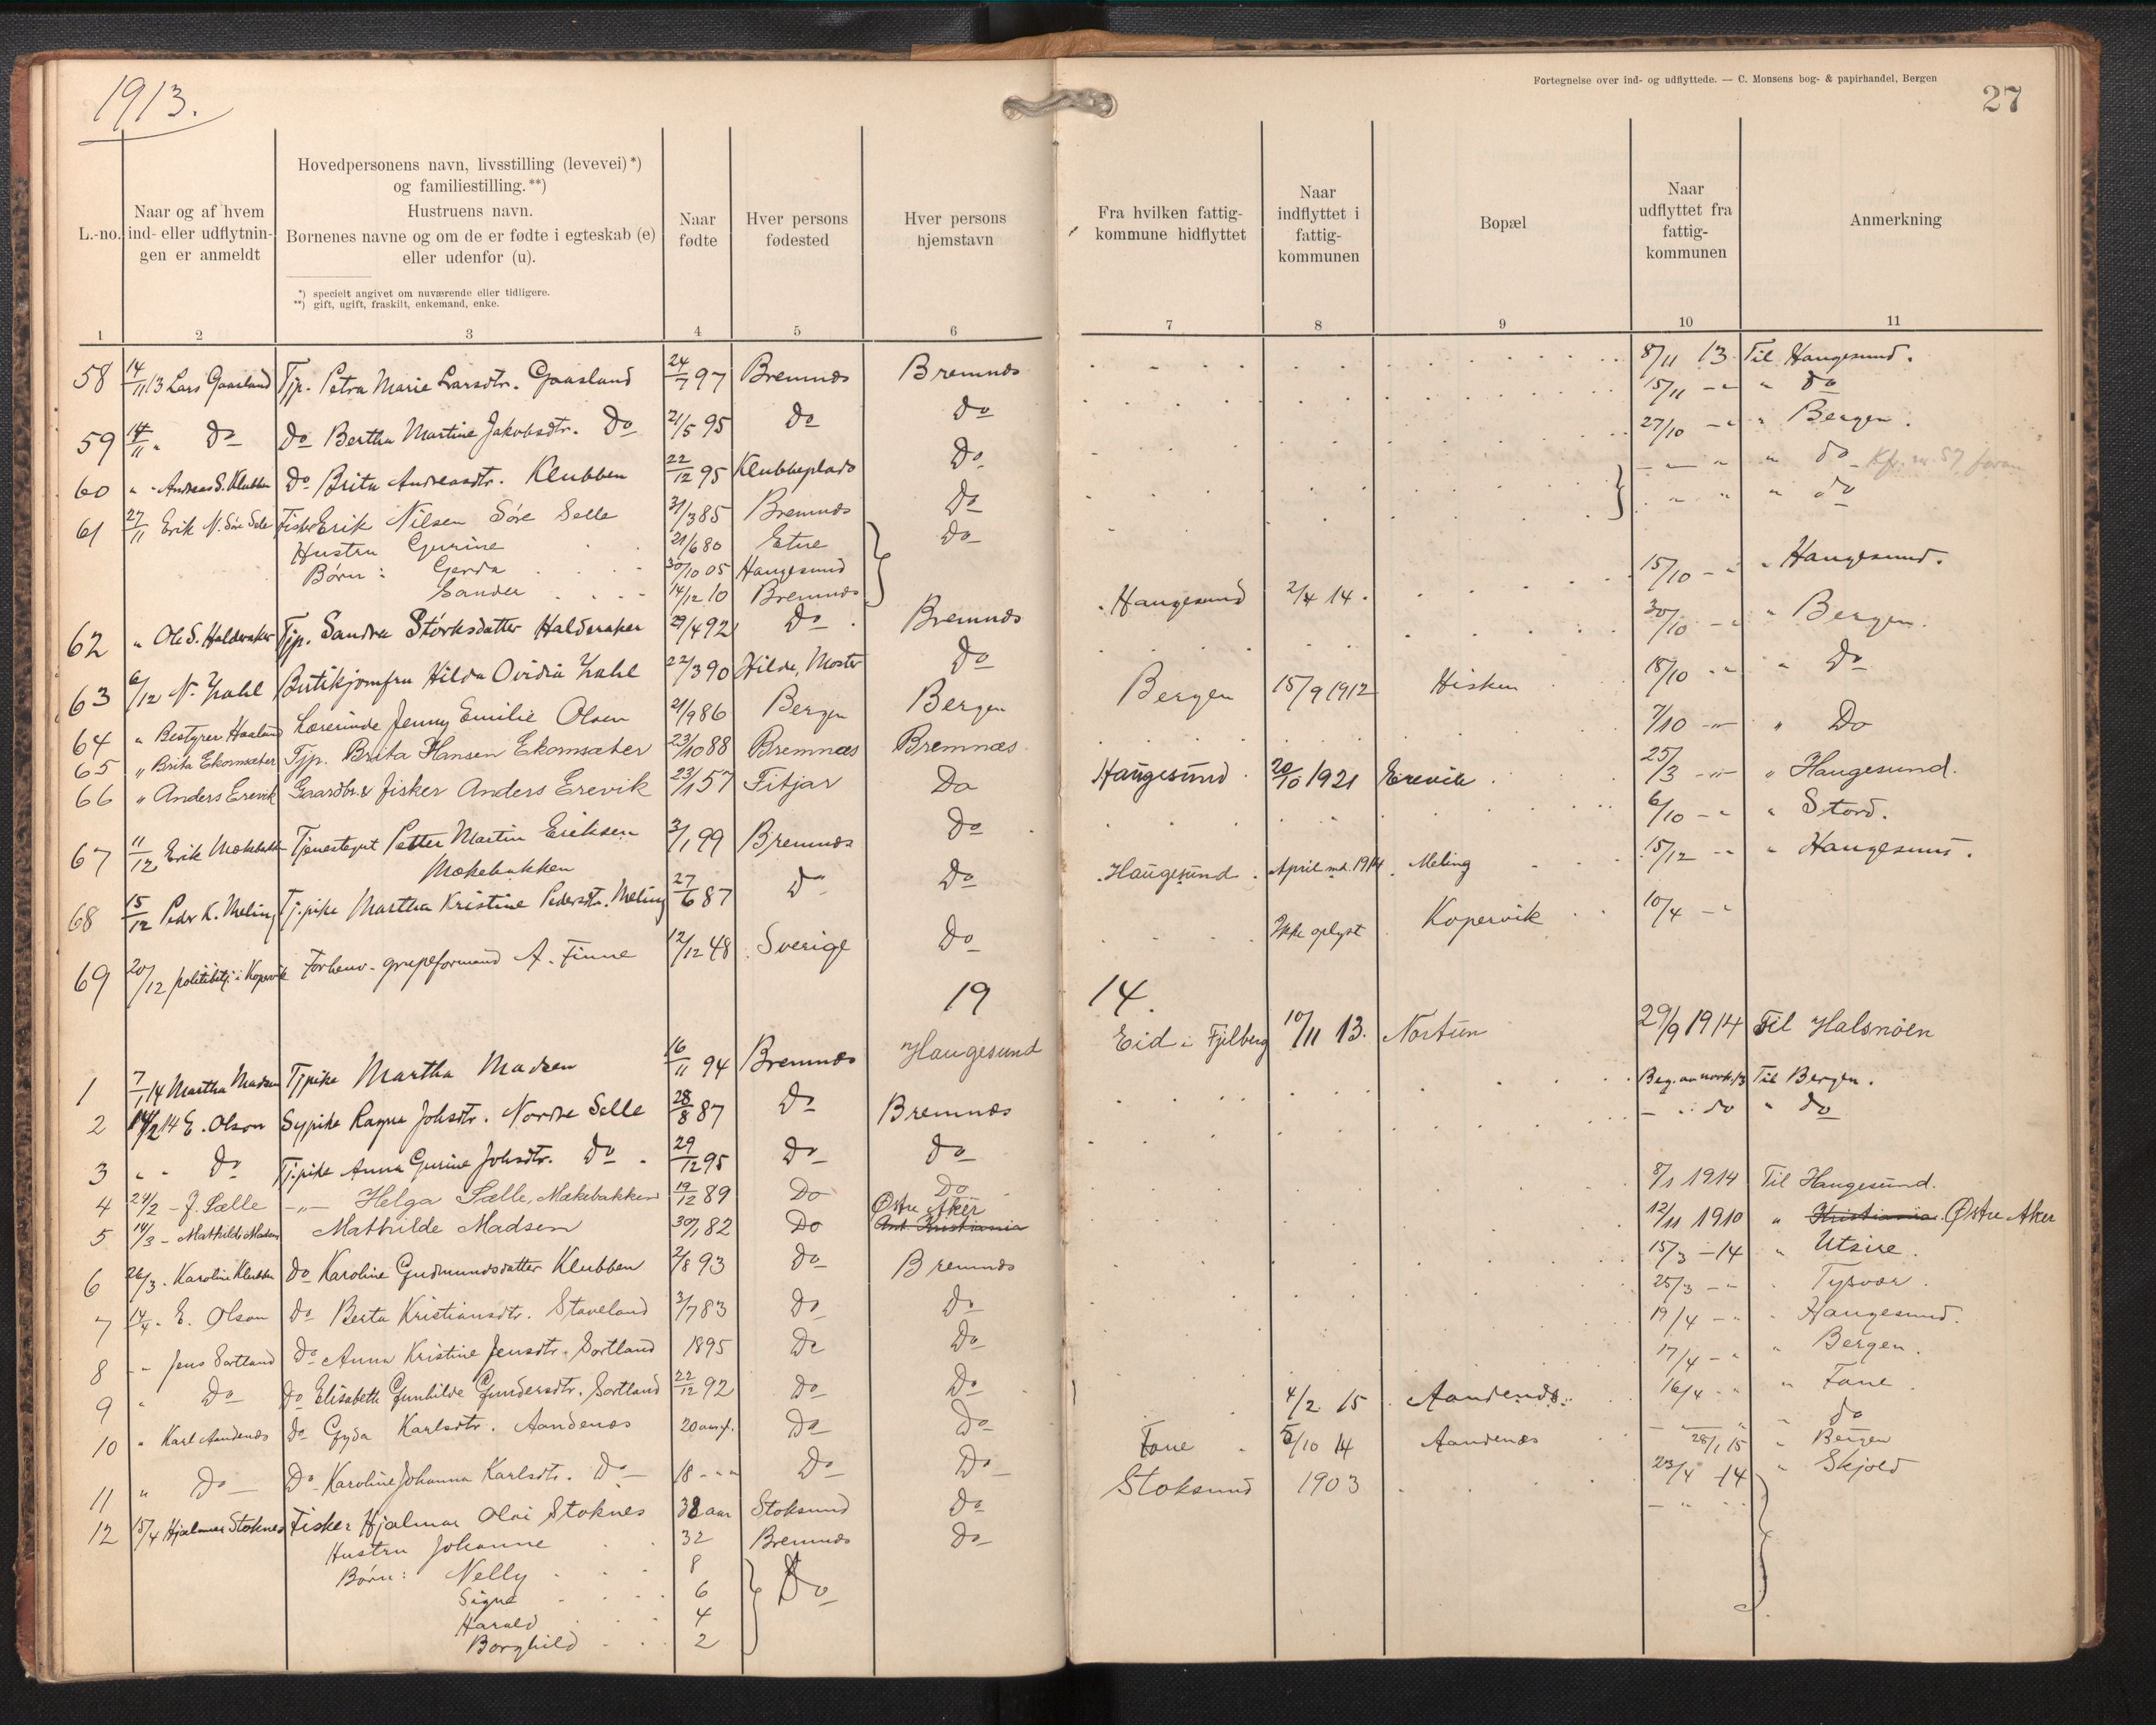 1913.
Fortegnelse over ind- og udflyttede. — C. Monsens bog- & papirhandel, Bergen
27
L.-no.
Naar og af hvem ind- eller udflytnin- gen er anmeldt
Hovedpersonens navn, livsstilling (levevei) *)
og familiestilling. **)
Hustruens navn.
Børnenes navne og om de er fødte i egteskab (e)
eller udenfor (u).
*) specielt angivet om nuværende eller tidligere.
**) gift, ugift, fraskilt, enkemand, enke.
Naar fødte
Hver persons fødested
Hver persons hjemstavn
Fra hvilken fattig- kommune hidflyttet
Naar indflyttet i fattig- kommunen
Bopæl
Naar udflyttet fra fattig- kommunen
Anmerkning
1 2 3 4 5 6 7 8 9 10 11
58 14/11 13 Lars Gaasland Tjp. Petra Marie Larsdtr. Gaasland 24/7 97 Bremnes Bremnes 8/11 13 Til Haugesund.
59 14/11 " Do Do Bertha Martine Jakobsdtr. Do 21/5 95 Do Do 15/11 -"- " Do
60 " - Andreas S. Klubben Do Brita Andreasdtr. Klubben 22/12 95 Klubbeplads Do 27/10 -"- " Bergen.
61 27/11 Erik N. Søre Selle Fisker Erik Nilsen Søre Selle 31/3 85 Bremnes Do - - " " do Kfr. nr 57 foran
Hustru Gurine 21/6 80 Etne Do - " " do
Børn: Gerda 30/10 05 Haugesund
Sander 14/12 10 Bremnes
62 " Ole S. Halderaker Tjp. Sandra Størksdatter Halderaker 29/4 92 Do Bremnes Haugesund 2/4 14. 15/10 -"- " Haugesund.
63 6/12 N. Zahl Butikjomfru Hilda Ovidia Zahl 22/3 90 Hilde, Moster Do 30/10 -"- " Bergen.
64 " Bestyrer Haaland Lærerinde Jenny Emilie Olsen 21/9 86 Bergen Bergen Bergen 15/9 1912 Hisken 18/10 -"- " Do
65 " Brita Ekornsæter Tjp. Brita Hansen Ekornsæter 23/10 88 Bremnæs Bremnæs 7/10 -"- " Do
66 " Anders Erevik Gaardbr. & fisker Anders Erevik 23/1 57 Fitjar Do Haugesund 20/10 1921 Erevik 25/3 -"- " Haugesund.
67 11/12 Erik Mækebakk Tjenestegut Petter Martin Eriksen 3/1 99 Bremnes Do 6/10 -"- " Stord.
Mækebakken
68 15/12 Peder K. Meling Tj.pike Martha Kristine Pedersdtr. Meling 27/6 87 Do Do Haugesund April md. 1914 Meling 15/12 -"- " Haugesund.
69 20/12 politibetj. i Kopervik Forhenv. grupeformand A. Finne 12/12 48 Sverige Do Ikke oplyst Kopervik 10/4 -"-
19 14.
1 7/1 14 Martha Madsen Tjpike Martha Madsen 16/11 94 Bremnes Haugesund Eid i Fjelberg 10/11 13. Nortun 29/9 1914 Til Halsnøen
2 14/2 14 E. Olson Sypike Ragna Johsdtr. Nordre Selle 28/8 87 Do Bremnes Beg. av novbr. 13 Til Bergen.
3 " - Do Tj.pike Anna Gurine Johsdtr. Do 29/12 95 Do Do - do " do
4 24/2 - J. Sælle -"- Helga Sælle, Mækebakken 19/12 89 Do Do 8/1 1914 Til Haugesund.
5 14/3 - Mathilde Madsen Mathilde Madsen 30/1 82 Do Østre Aker Ant. Kristiania 12/11 1910 " Kristiania. Østre Aker
6 26/3. Karoline Klubben Do Karoline Gudmundsdatter Klubben 2/8 93 Do Bremnes 15/3 -14 " Utsire.
7 14/4. E. Olson Do Berta Kristiansdtr. Staveland 3/7 83 Do Do 25/3 -"- " Tysvær.
8 - " Jens Sortland Do Anna Kristine Jensdtr. Sortland 1895 Do Do 19/4 -"- " Haugesund.
9 " Do Do Elisabeth Gunhilde Gundersdtr. Sortland 22/12 92 Do Do 17/4 -"- " Bergen.
10 " Karl Aandenæs Do Gyda Karlsdtr. Aandenæs 20 aar f. Do Do 4/2 15 Aandenæs. 16/4 -"- " Fane.
11 " Do Do Karoline Johanna Karlsdtr. Do 18 - " - Do Do Fane 5/10 14 Aandenæs - " - " do
28/1 15 " Bergen
12 15/4 Hjalmar Stoknes Fisker Hjalmar Olai Stoknes 38 aar Stoksund Do Stoksund 1903 23/4 -14 " Skjold
Hustru Johanne 32 Bremnes Do - " -
Børn: Nelly 8 Do
Signe 6
Harald 4
Borghild 2